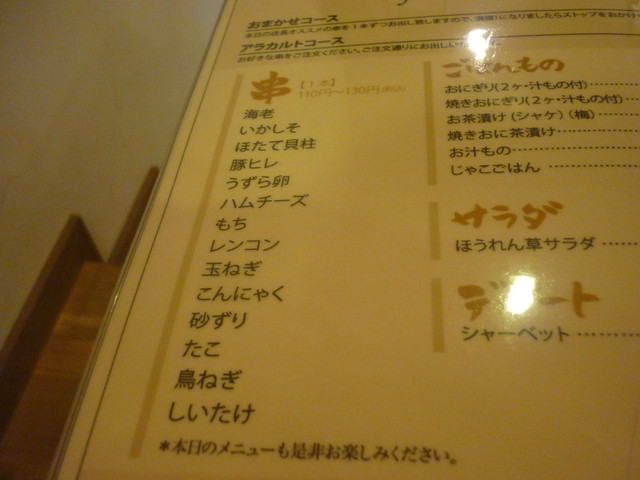 おまかせコース
本日の店長オススメの串を1本ずつお出し致しますので、満腹になりましたらストップをおかけ
アラカルトコース
お好きな串をご注文ください。ご注文通りにお出しいた
串
【1本】
110円〜130円(税込)
海老
いかしそ
ほたて貝柱
豚ヒレ
うずら卵
ハムチーズ
もち
レンコン
玉ねぎ
こんにゃく
砂ずり
たこ
鳥ねぎ
しいたけ
*本日のメニューも是非お楽しみください。
ごはんもの
おにぎり(2ヶ・汁もの付)
焼きおにぎり(2ヶ・汁もの付)
お茶漬け(シャケ)(梅)
焼きおに茶漬け
お汁もの
じゃこごはん
サラダ
ほうれん草サラダ
デザート
シャーベット